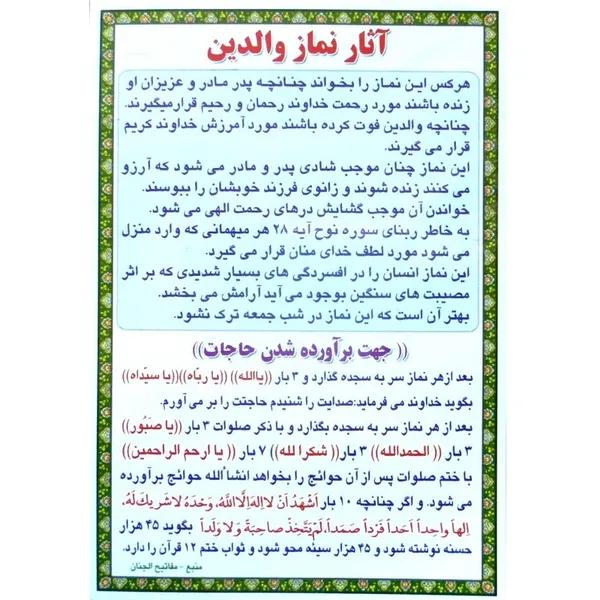 آثار نماز والدین
هرکس این نماز را بخواند چنانچه پدر مادر و عزیزان او
زنده باشند مورد رحمت خداوند رحمان و رحیم قرارمیگیرند.
چنانچه والدین فوت کرده باشند مورد آمرزش خداوند کریم
قرار می گیرند.
این نماز چنان موجب شادی پدر و مادر می شود که آرزو
می کنند زنده شوند و زانوی فرزند خویشان را ببوسند.
خواندن آن موجب گشایش درهای رحمت الهی می شود.
به خاطر ربنای سوره نوح آیه ۲۸ هر میهمانی که وارد منزل
می شود مورد لطف خدای منان قرار می گیرد.
این نماز انسان را در افسردگی های بسیار شدیدی که بر اثر
مصیبت های سنگین بوجود می آید آرامش می بخشد.
بهتر آن است که این نماز در شب جمعه ترک نشود.
(( جهت برآورده شدن حاجات))
بعد ازهر نماز سر به سجده گذارد و ۳ بار ((یاالله)) ((یا ربّاه))((یا سیّداه))
بگوید خداوند می فرماید:صدایت را شنیدم حاجتت را بر می آورم.
بعد از هر نماز سر به سجده بگذارد و با ذکر صلوات ۳ بار ((یا صَبُور))
۳ بار (( الحمدالله)) ۳ بار(( شکرا لله)) ۷ بار (( یا ارحم الراحمین))
با ختم صلوات پس از آن حوائج را بخواهد انشأالله حوائج برآورده
می شود. و اگر چنانچه ۱۰ بار اَشْهَدُ اَنْ لا اِلهَ اِلَّا اللهُ، وَحْدَهُ لا شَریکَ لَهُ،
اِلهاً واحِداً اَحَداً فَرْداً صَمَداً، لَمْ یَتَّخِذْ صاحِبَةً وَ لا وَلَداً بگوید ۴۵ هزار
حسنه نوشته شود و ۴۵ هزار سیئه محو شود و ثواب ختم ۱۲ قرآن را دارد.
منبع - مفاتیح الجنان